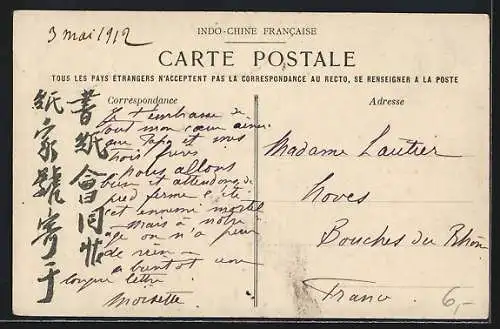 3 mai 1912
INDO-CHINE FRANÇAISE
CARTE POSTALE
TOUS LES PAYS ÉTRANGERS N'ACCEPTENT PAS LA CORRESPONDANCE AU RECTO, SE RENSEIGNER A LA POSTE
Correspondance
Je t'embrasse de
tout mon cœur ainsi
que Papa et mes
trois frères
Nous allons
bien et attendons de
pied ferme l'été
cet ennemi mortel
Mais à notre
âge on n'a peur
de rien
a bientôt une
longue lettre
書紙會同
紙家號寄于
Adresse
Madame Lautier
Noves
Bouches du Rhône
France
6,-